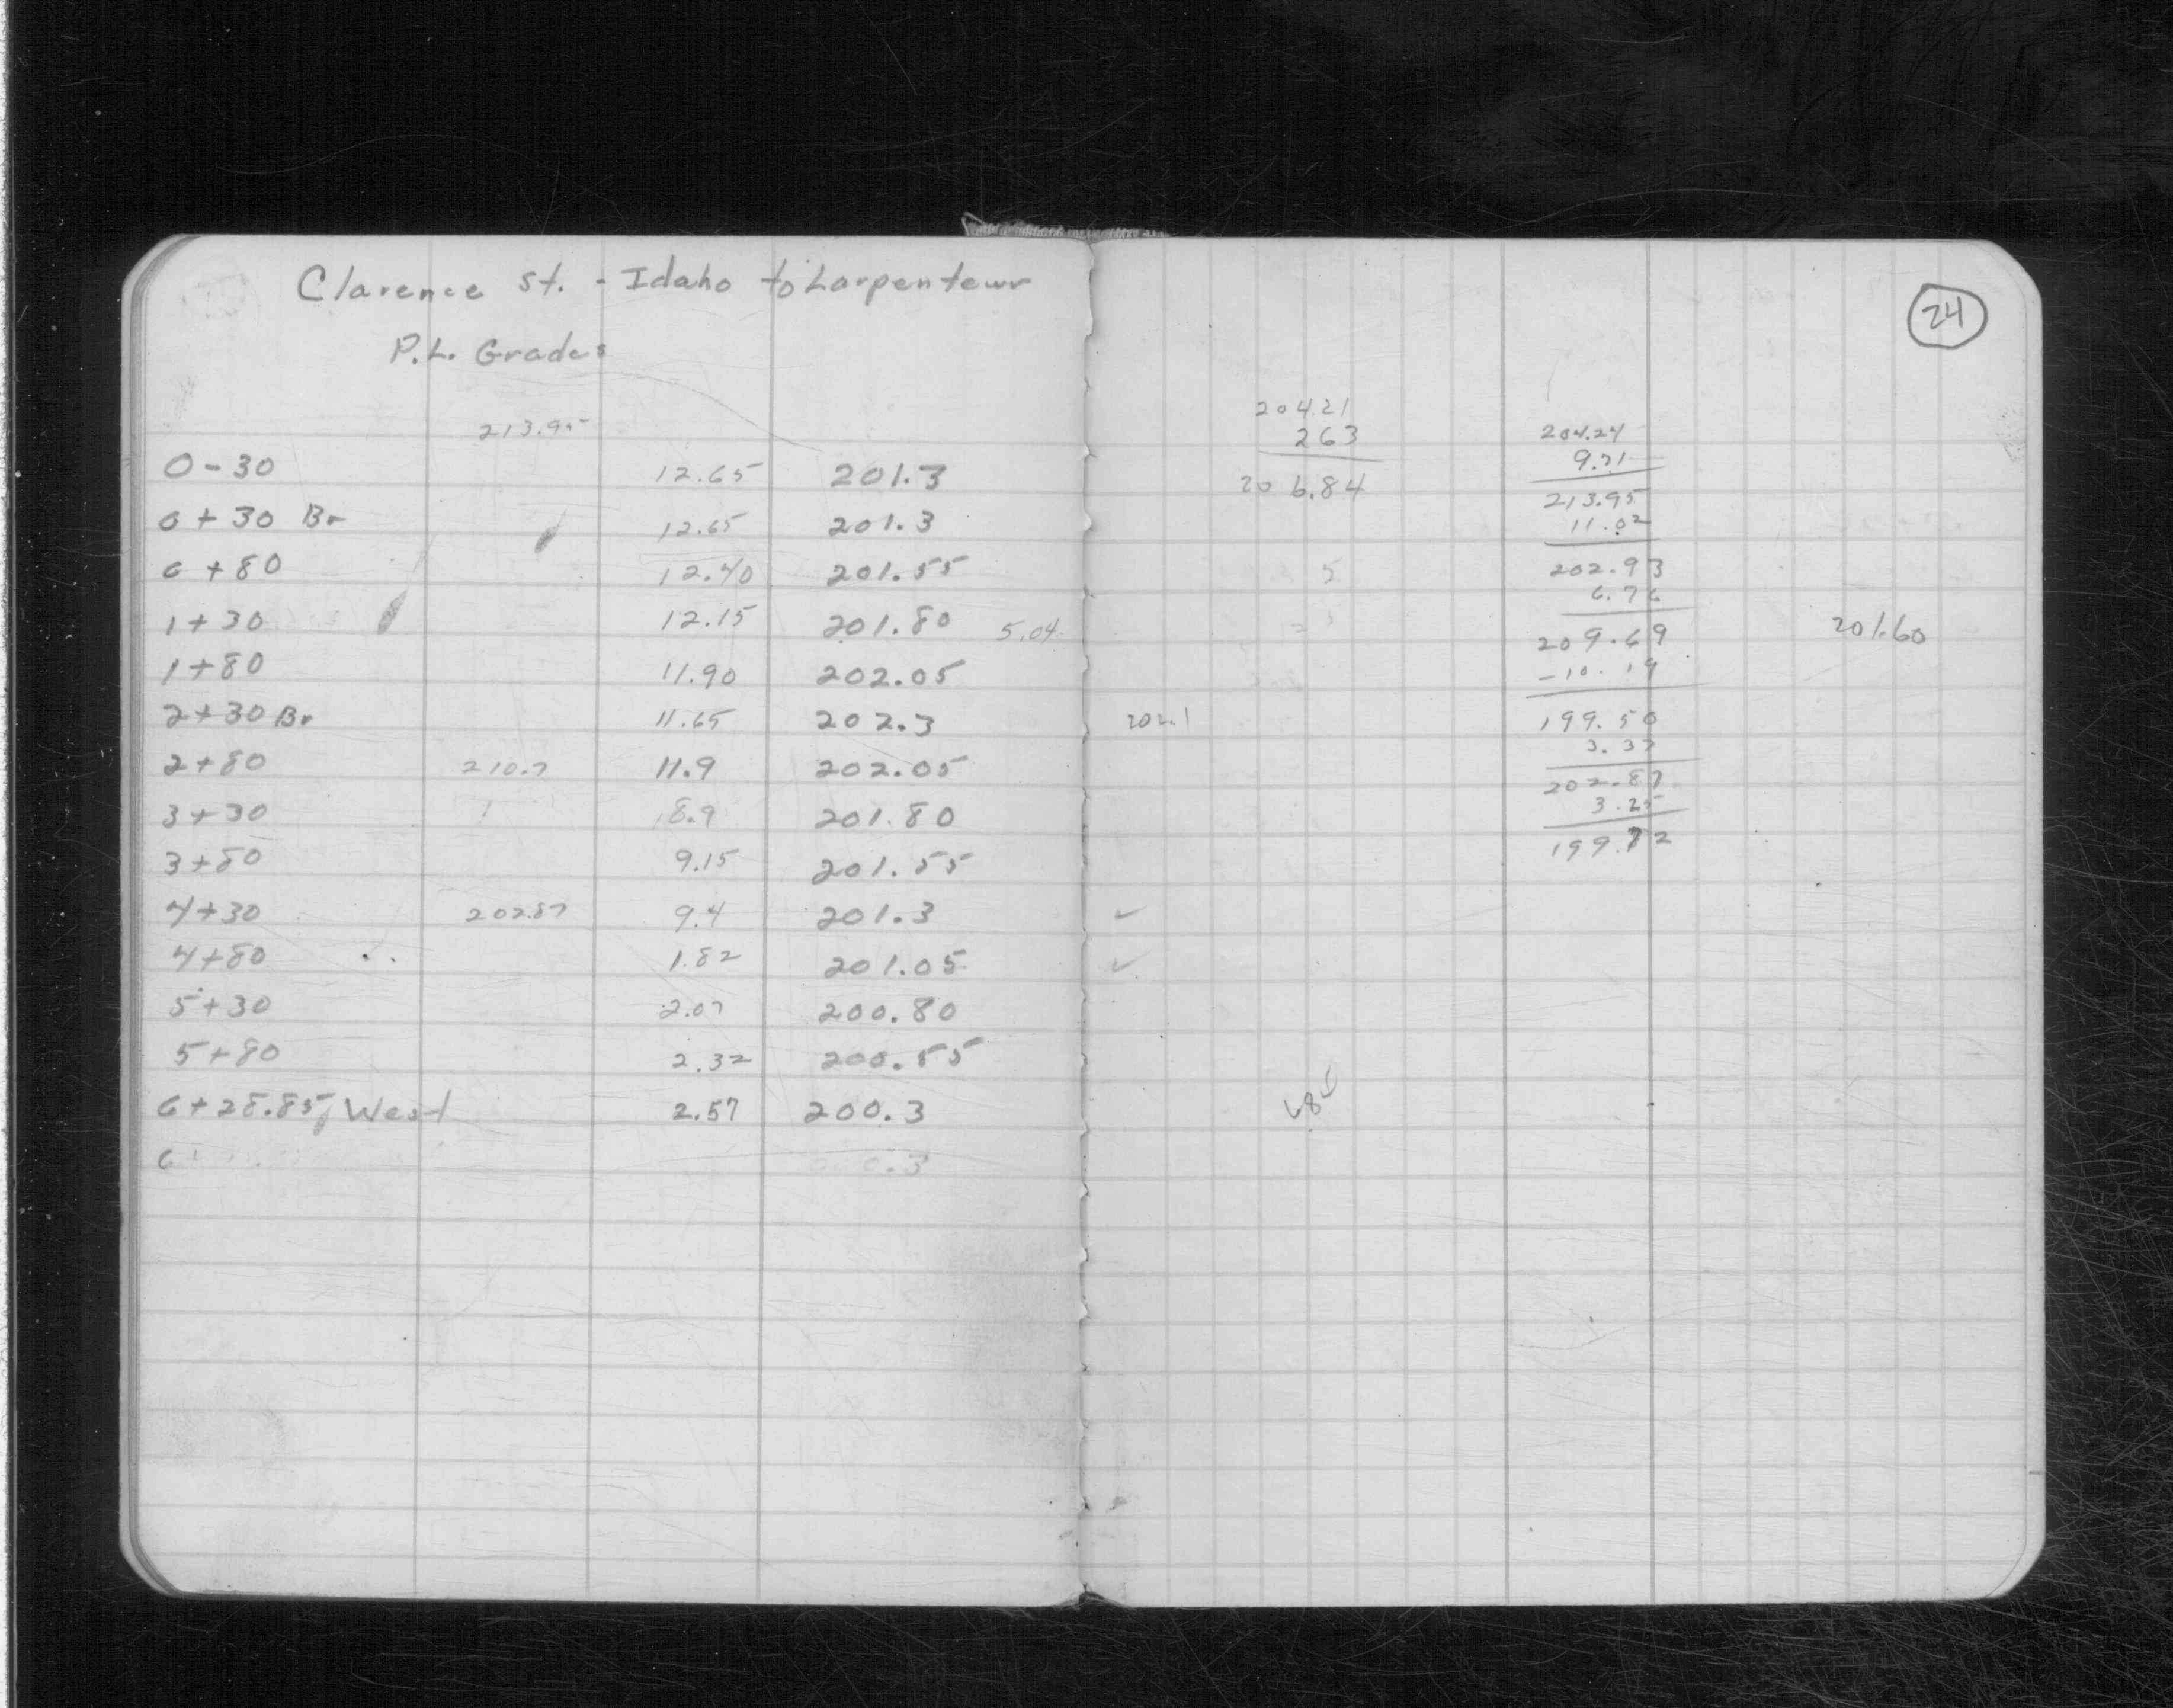 Clarence St. - Idaho to Larpenteur
P.L. Grades
213.95
0-30 12.65 201.3
0+30 Br 12.65 201.3
0+80 12.40 201.55
1+30 12.15 201.80 5.04
1+80 11.90 202.05
2+30 Br 11.65 202.3
2+80 210.7 11.9 202.05
3+30 8.9 201.80
3+80 9.15 201.55
4+30 202.87 9.4 201.3
4+80 1.82 201.05
5+30 2.07 200.80
5+80 2.32 200.55
6+28.85 West 2.57 200.3
6 .3
24
204.21
263
206.84
5
202.1
685
204.24
9.71
213.95
11.02
202.93
6.76
209.69
-10.19
199.50
3.37
202.87
3.25
199.72
201.60